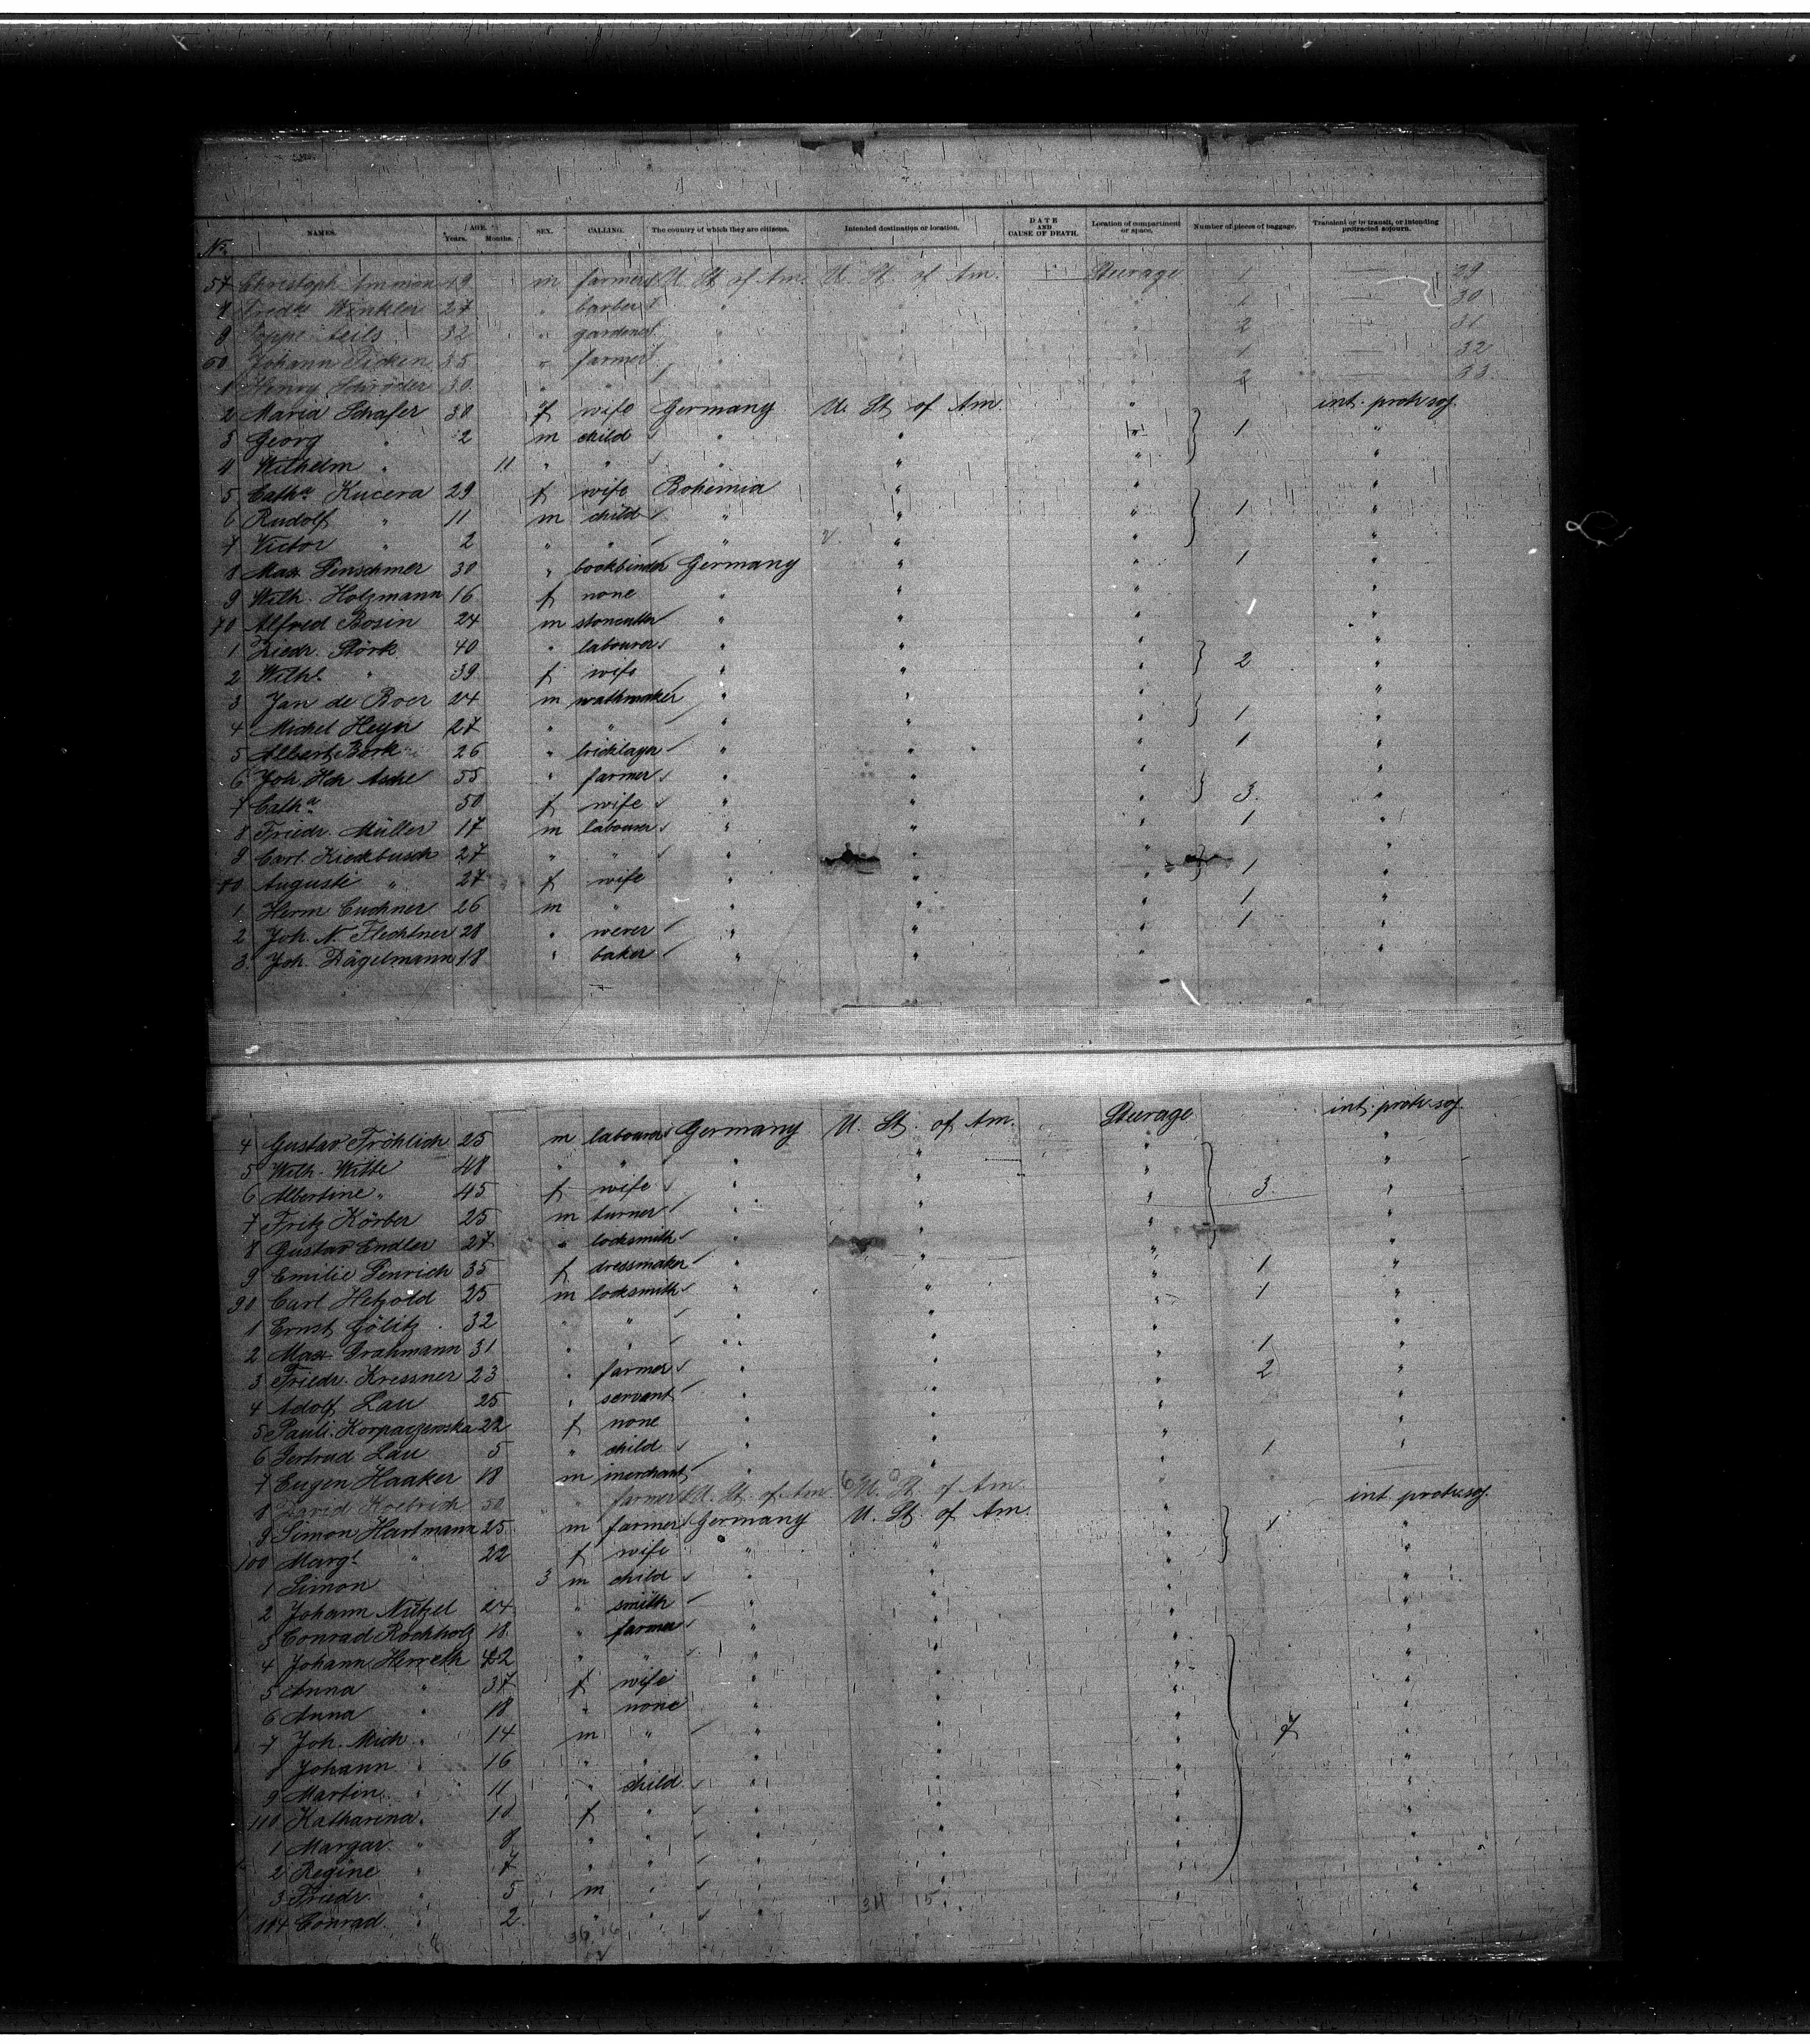 No. NAMES. AGE. Years. Months. SEX. CALLING. The country of which they are citizens. Intended destination or location. DATE AND CAUSE OF DEATH. Location of compartment or space. Number of pieces of baggage. Transient or in transit, or intending protracted sojourn.
57 Christoph Ammon 19 m farmer U. St. of Am. U. St. of Am. Steerage 1 — 29
8 Fredk Winkler 27 " barber " " 1 — 30
9 32 " gardener " " 2 — 31
60 Johann Ficken 35 " farmer " " 1 — 32
1 Henry Schröder 30 " " " " 2 — 33
2 Maria Schafer 30 f wife Germany U. St. of Am. " int. protr. soj.
3 Georg " 2 m child " " " 1 "
4 Wilhelm " 11 " " " " " "
5 Catha Kucera 29 f wife Bohemia " " "
6 Rudolf " 11 m child " " " 1 "
7 Victor " 2 " " " " " "
8 Max 30 " bookbinder Germany " " 1 "
9 Wilh. Holzmann 16 f none " " " "
70 Alfred Bosin 24 m stonecutter " " " "
1 Friedr. Störk 40 " labourer " " " "
2 Wilhe " 39 f wife " " " 2 "
3 Jan de Boer 24 m wathmaker " " " "
4 Michel Heyn 27 " " " " " 1 "
5 Albert Bork 26 " bricklayer " " " 1 "
6 Joh. Hch Asche 55 " farmer " " " "
7 Catha 50 f wife " " " 3 "
8 Friedr. Müller 17 m labourer " " " 1 "
9 Carl Kieckbusch 27 " " " " " "
80 Auguste " 27 f wife " " " 1 "
1 Herm Euchner 26 m " " " " 1 "
2 Joh. N. Flechtner 28 " wever " " " 1 "
3 Joh. Dägelmann 18 " baker " " " "
4 Gustav Fröhlich 25 m labourer Germany U. St. of Am. Steerage int. protr. soj.
5 Wilh. Witte 48 " " " " " "
6 Albertine " 45 f wife " " " 3 "
7 Fritz Körber 25 m turner " " " "
8 Gustav Endler 27 " locksmith " " " "
9 Emilie Penrich 35 f dressmaker " " " 1 "
90 Carl Hetzold 25 m locksmith " " " 1 "
1 Ernst Gölitz 32 " " " " " "
2 Max Grahmann 31 " " " " " 1 "
3 Friedr. Kressner 23 " farmer " " " 2 "
4 Adolf Lau 25 " servant " " " "
5 Pauli. Korpaczewska 22 f none " " " "
6 Gertrud Lau 5 " child " " " 1 "
7 Eugen Haaker 18 m merchant " " " "
8 David 50 " farmer U. St. of Am. U. St. of Am.
9 Simon Hartmann 25 m farmer Germany U. St. of Am. " 1 int. protr. soj.
100 Margt " 22 f wife " " " "
1 Simon 3 m child " " " "
2 Johann Nützel 24 " smith " " " "
3 Conrad Rochholz 18 " farmer " " " "
4 Johann Herreth 42 " " " " " "
5 Anna " 37 f wife " " " "
6 Anna " 18 " none " " " "
7 Joh. Mich " 14 m " " " " 7 "
8 Johann " 16 " " " " " "
9 Martin " 11 " child " " " "
110 Katharina " 10 f " " " " "
1 Margar. " 8 " " " " " "
2 Regine " 7 " " " " " "
3 Friedr. " 5 m " " " " "
114 Conrad " 2 " " "